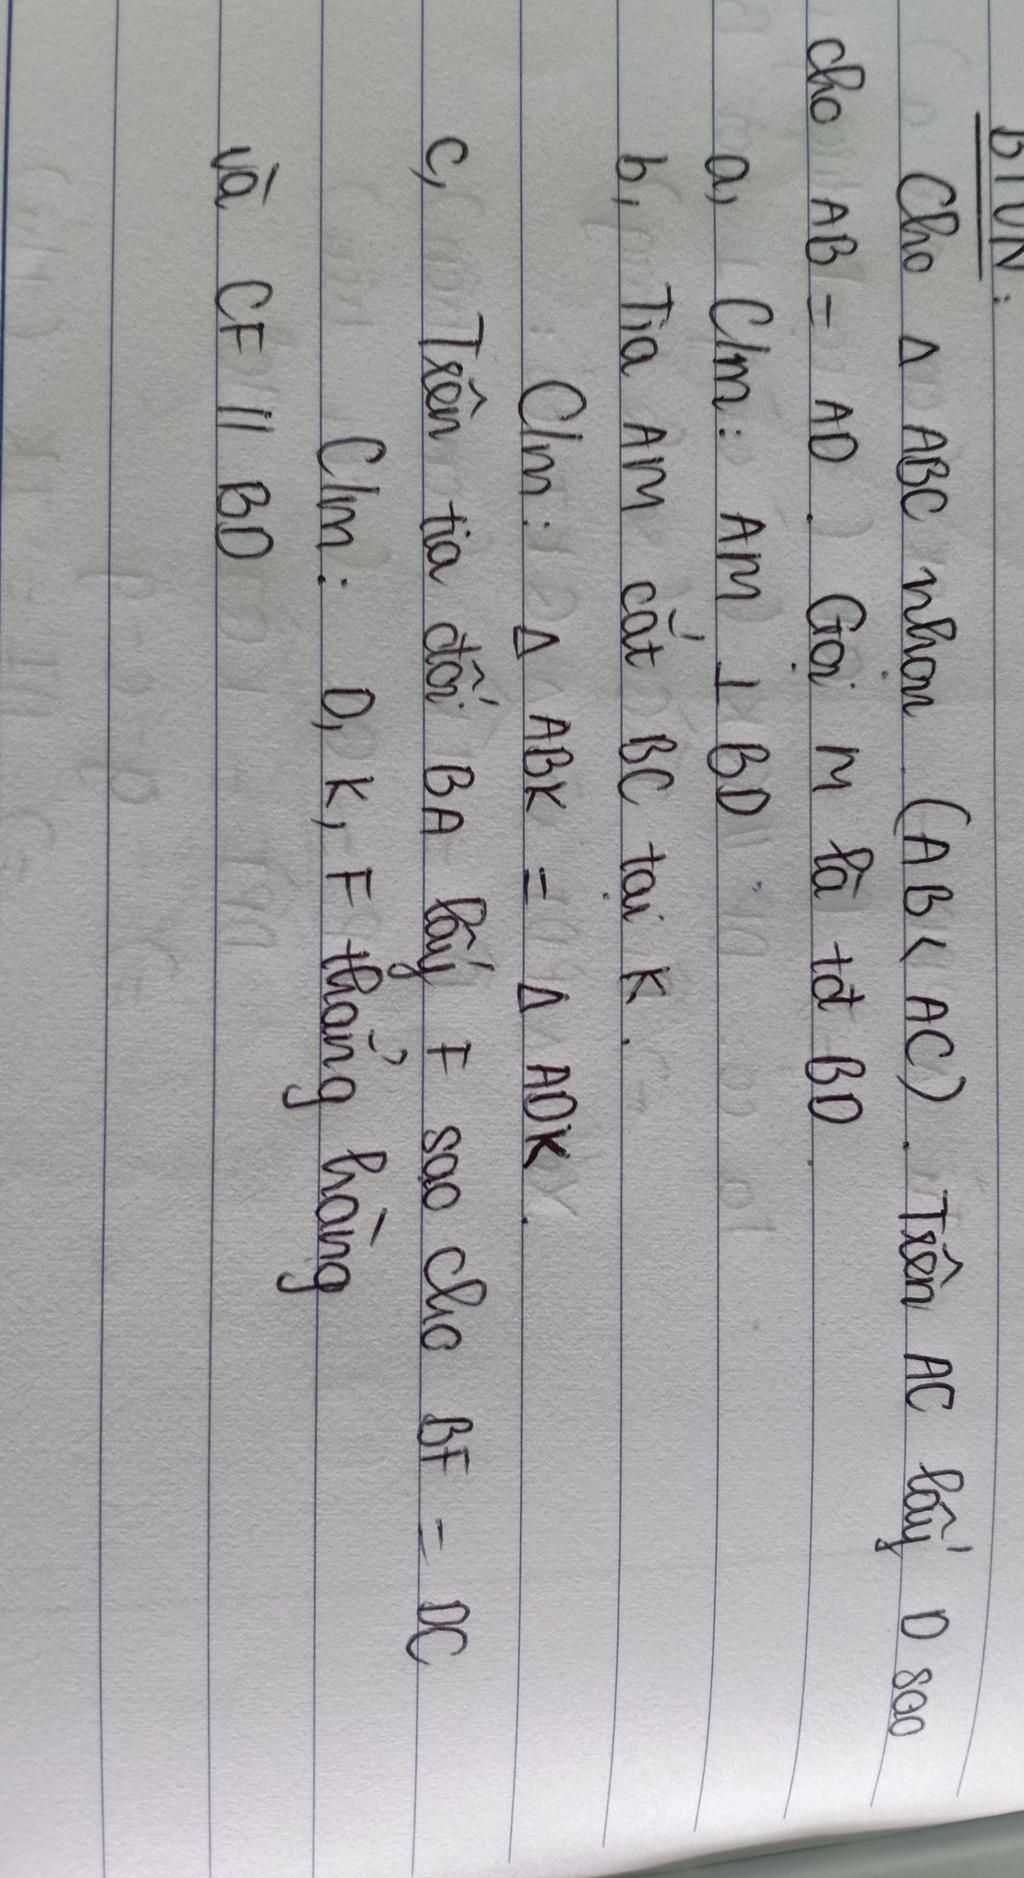 BTVN:
Cho Δ ABC nhọn (AB < AC). Trên AC lấy D sao
cho AB = AD. Gọi M là tđ BD.
a, C/m: AM ⊥ BD
b, Tia AM cắt BC tại K.
C/m: Δ ABK = Δ ADK.
c, Trên tia đối BA lấy F sao cho BF = DC
C/m: D, K, F thẳng hàng
và CF // BD